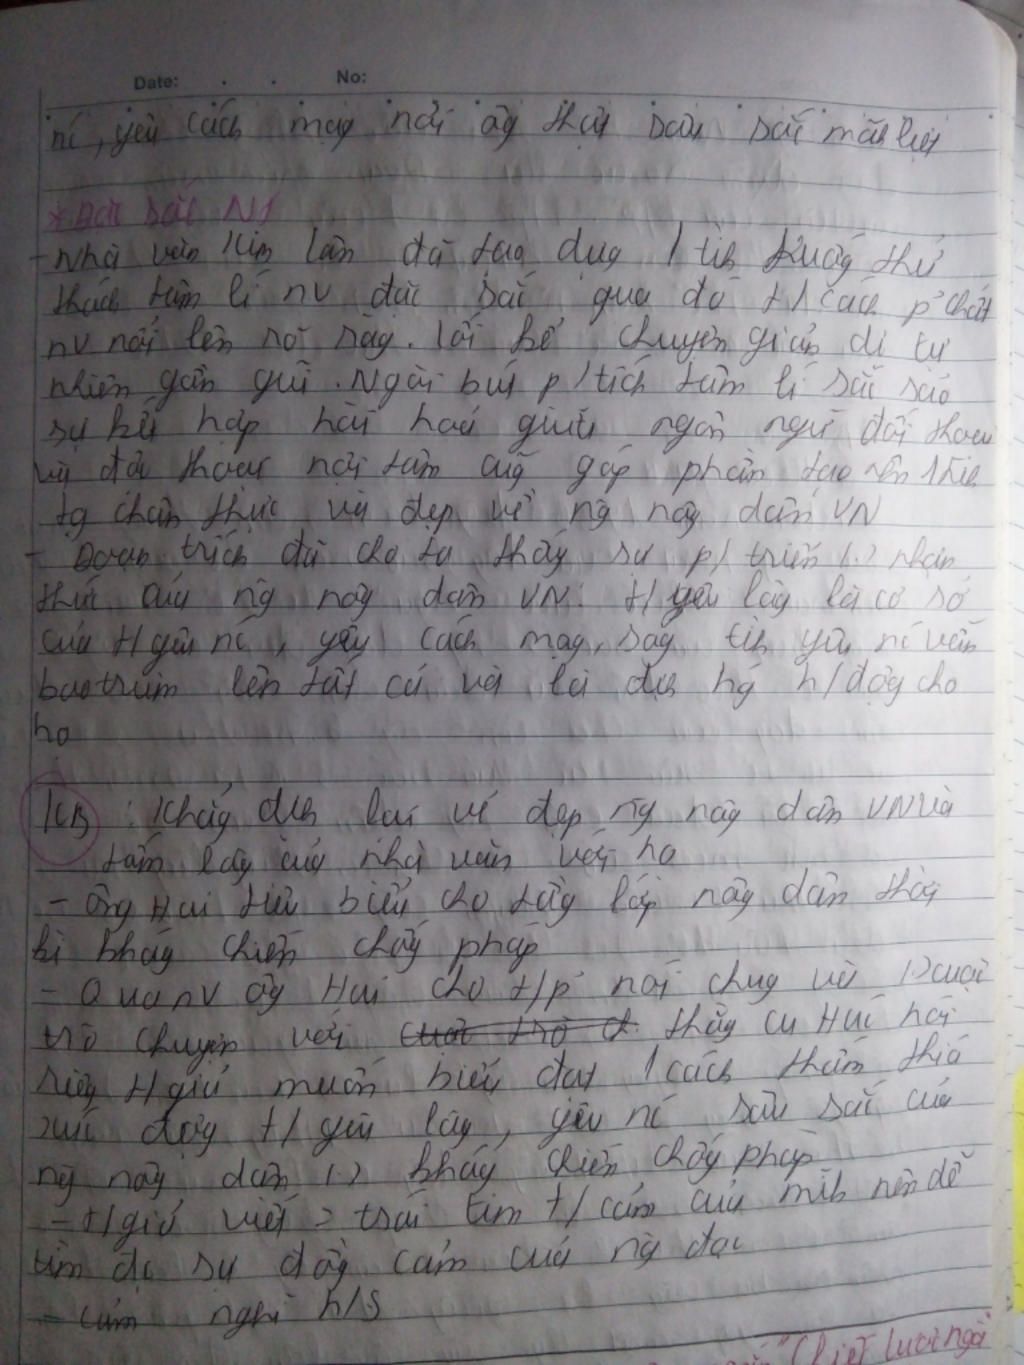 Date: . . No:
nc, yêu cách mạg nơi ôg thật sâu sắc mãnh liệt
* Đặc sắc NT
- Nhà văn Kim Lân đã tạo dựg 1 tìh huốg thử
thách tâm lí nv đặc sắc qua đó t/cách p chất
nv nổi lên rõ ràg. Lối kể chuyện giản dị tự
nhiên gần gũi. Ngòi bút p/tích tâm lí sắc sảo
sự kết hợp hài hoà giữa ngôn ngữ đối thoại
và độc thoại nội tâm cũg góp phần tạo nên 1 hìh
tg chân thực và đẹp về ng nôg dân VN
- Đoạn trích đã cho ta thấy sự p/triển (.) nhận
thức của ng nôg dân VN: t/yêu làg là cơ sở
của t/yêu nc, yêu cách mạg, sog tìh yêu nc vẫn
bao trùm lên tất cả và là địh hg h/độg cho
họ
KB: Khẳg địh lại vẻ đẹp ng nôg dân VN và
tấm lòg của nhà văn với họ
- Ôg Hai tiêu biểu cho tầg lớp nôg dân thời
kì khág chiến chốg pháp
- Qua nv ôg Hai cho t/p nói chug và (.) cuộc
trò chuyện với cuộc trò ch thằg cu Húc nói
riêg t/giả muốn biểu đạt 1 cách thấm thía
xúc độg t/yêu làg, yêu nc sâu sắc của
ng nôg dân (.) khág chiến chốg pháp
- t/giả viết = trái tim t/cảm của mìh nên dễ
tìm đc sự đồg cảm của ng đọc
- cảm nghĩ h/s
"Chiếc lược ngà"